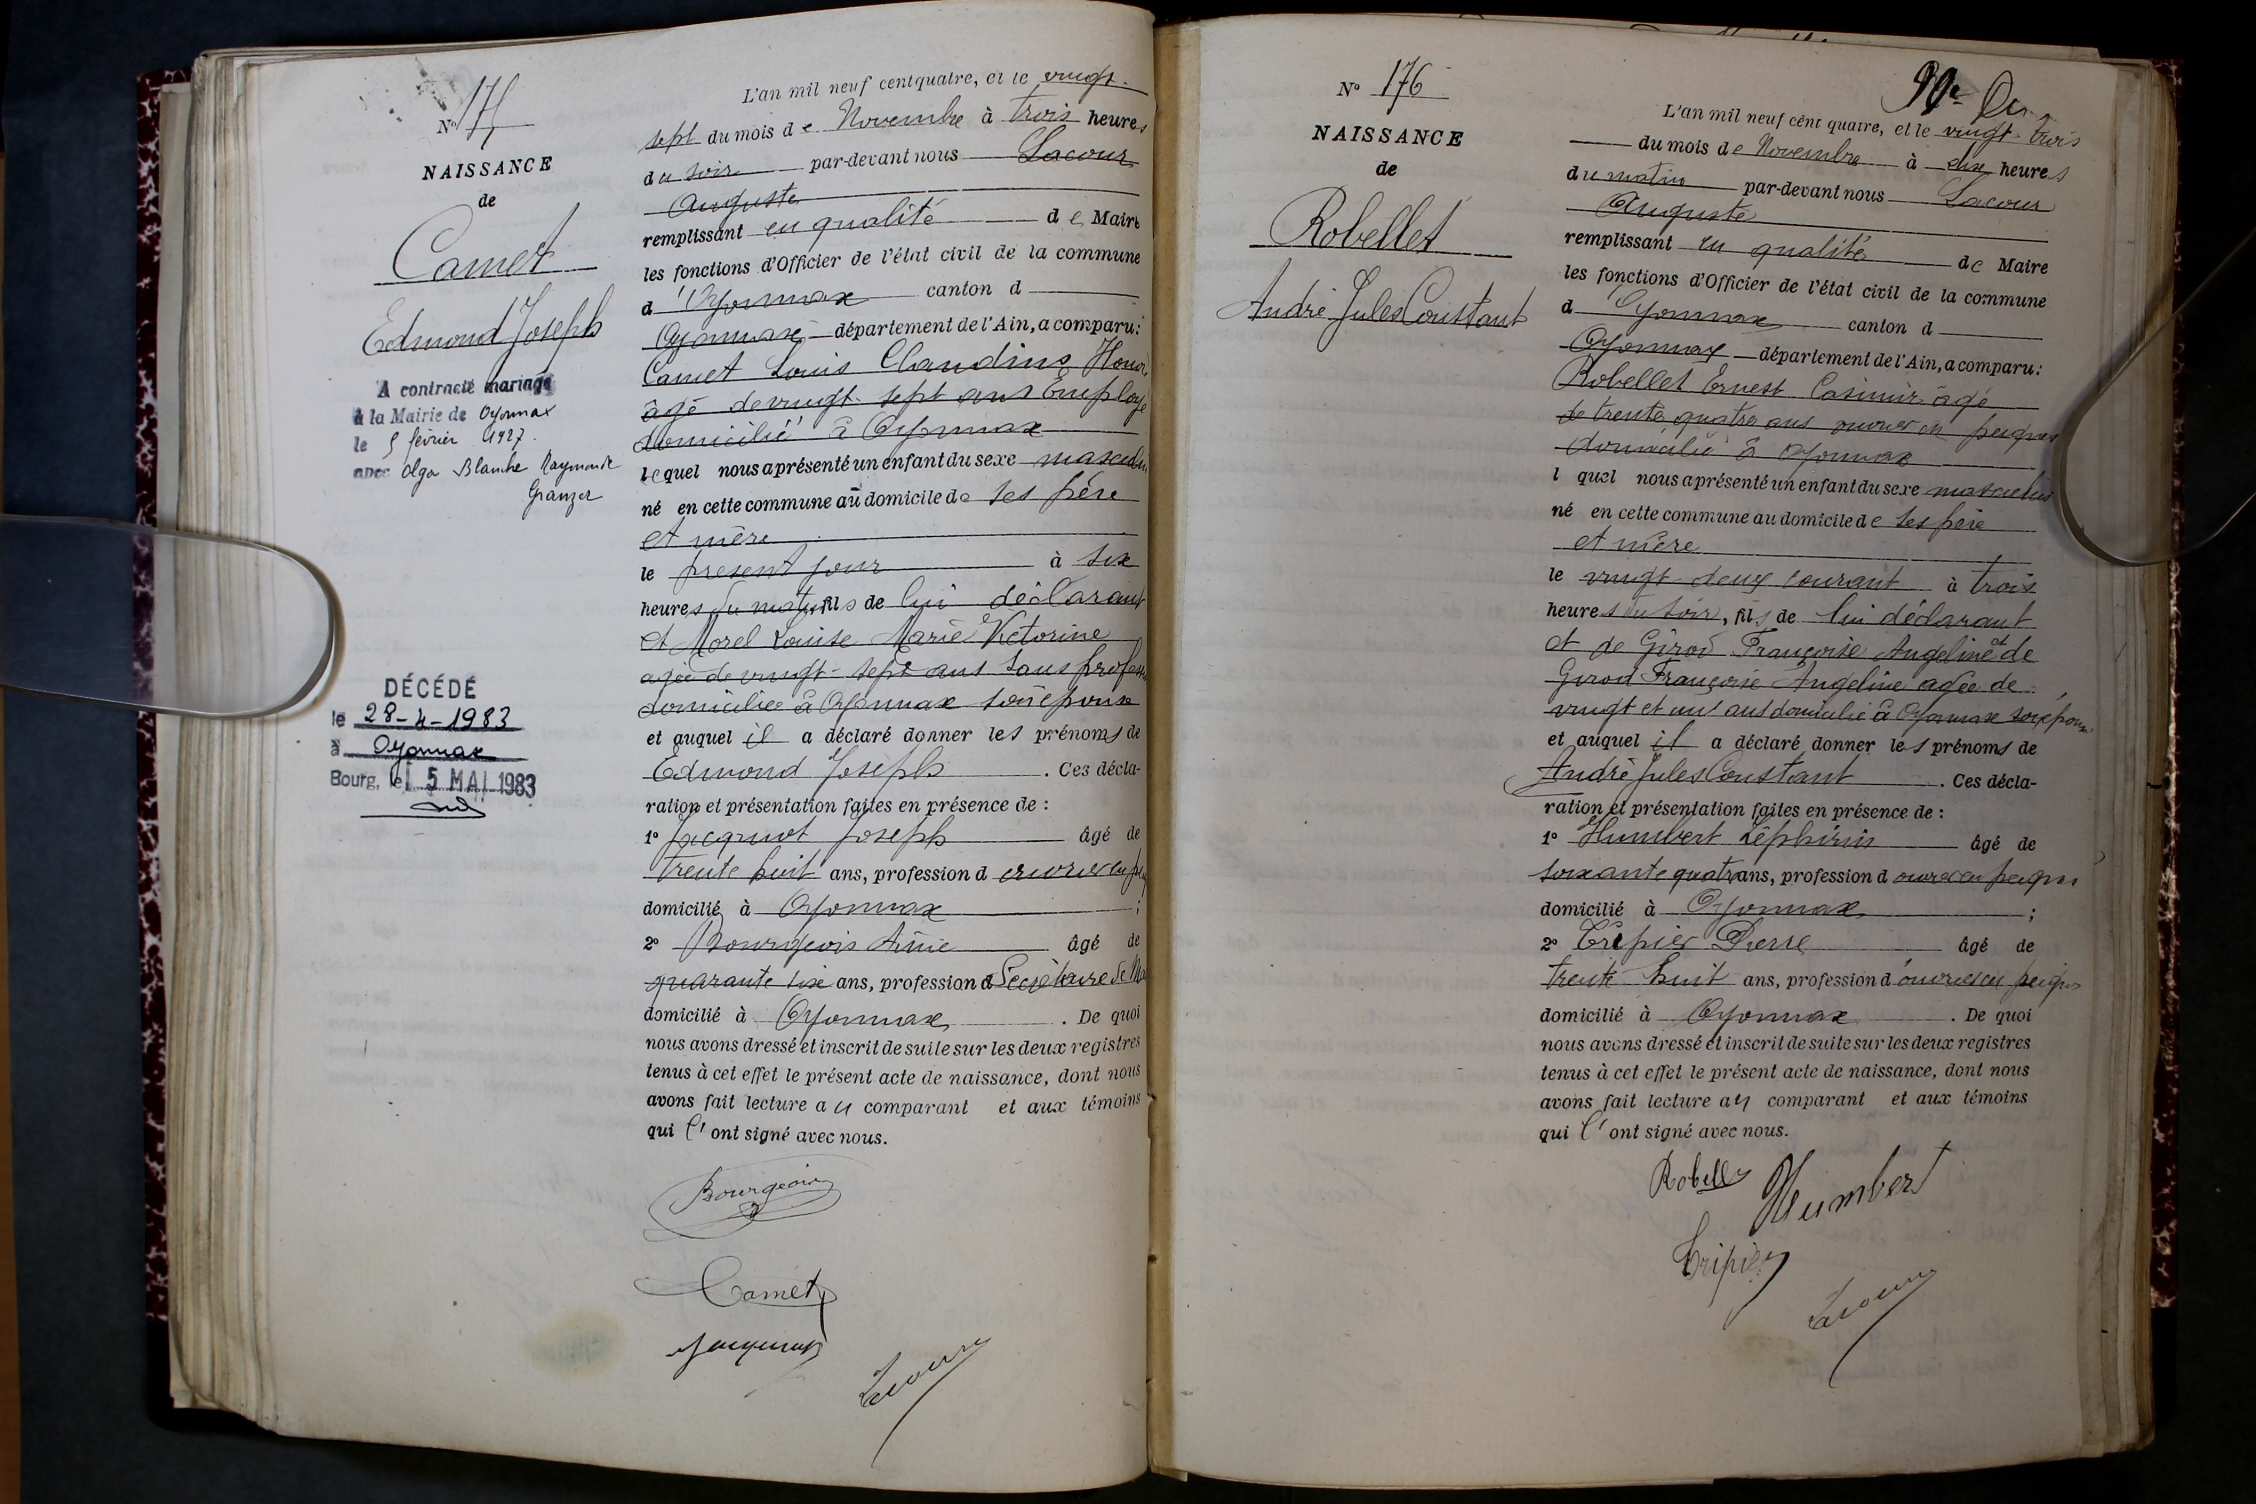 N° 175
NAISSANCE
de
Camet
Edmond Joseph
A contracté mariage
à la Mairie de Oyonnax
le 5 février 1927.
avec Olga Blanche Raymonde
Granger
DÉCÉDÉ
le 28-4-1983
à Oyonnax
Bourg, le 5 MAI 1983
L'an mil neuf cent quatre, et le vingt-
sept du mois de Novembre à trois heures
du soir par-devant nous Lacour
Auguste
remplissant en qualité de Maire
les fonctions d'Officier de l'état civil de la commune
d'Oyonnax canton d
Oyonnax département de l'Ain, a comparu:
Camet Louis Claudius Honoré
âgé de vingt-sept ans Employé
domicilié à Oyonnax
lequel nous a présenté un enfant du sexe masculin
né en cette commune au domicile de ses père
et mère
le présent jour à six
heures du matin, fils de lui déclarant
et Morel Louise Marie Victorine
agée de vingt-sept ans sans profession
domiciliée à Oyonnax son épouse
et auquel il a déclaré donner les prénoms de
Edmond Joseph . Ces décla-
ration et présentation faites en présence de :
1° Jacquot Joseph âgé de
trente huit ans, profession d ouvrier en
domicilié à Oyonnax ;
2° Bourgeois Aimé âgé de
quarante six ans, profession d Secrétaire de
domicilié à Oyonnax . De quoi
nous avons dressé et inscrit de suite sur les deux registres
tenus à cet effet le présent acte de naissance, dont nous
avons fait lecture au comparant et aux témoins
qui l'ont signé avec nous.
Bourgeois
Camet
Jacquot
Lacour
N° 176
NAISSANCE
de
Robellet
André Jules Constant
L'an mil neuf cent quatre, et le vingt-trois
du mois de Novembre à dix heures
du matin par-devant nous Lacour
Auguste
remplissant en qualité de Maire
les fonctions d'Officier de l'état civil de la commune
d'Oyonnax canton d
Oyonnax département de l'Ain, a comparu:
Robellet Ernest Casimir âgé
de trente quatre ans ouvrier en peignes
domicilié à Oyonnax
l quel nous a présenté un enfant du sexe masculin
né en cette commune au domicile de ses père
et mère
le vingt-deux courant à trois
heures du soir, fils de lui déclarant
et de Girod Françoise Angeline et de
Girod Françoise Angeline agée de
vingt et un ans domicilié à Oyonnax son épouse
et auquel il a déclaré donner les prénoms de
André Jules Constant . Ces décla-
ration et présentation faites en présence de :
1° Humbert Zéphirin âgé de
soixante quatre ans, profession d ouvrier en peignes
domicilié à Oyonnax ;
2° Tripier Pierre âgé de
trente huit ans, profession d'ouvrier en peignes
domicilié à Oyonnax . De quoi
nous avons dressé et inscrit de suite sur les deux registres
tenus à cet effet le présent acte de naissance, dont nous
avons fait lecture au comparant et aux témoins
qui l'ont signé avec nous.
Robellet Humbert
Tripier
Lacour